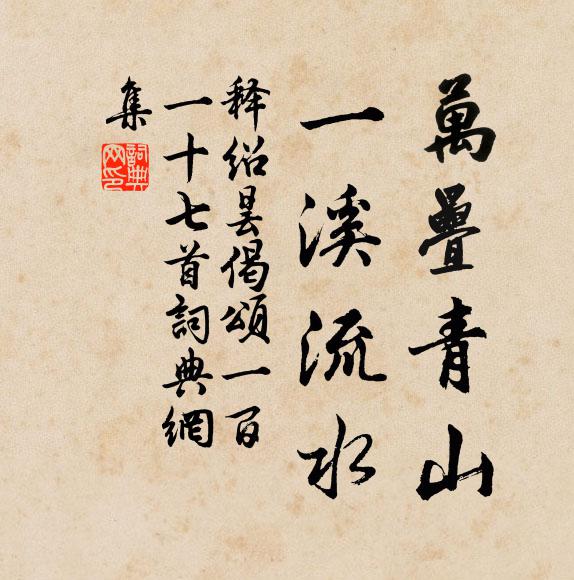 萬疊青山
一溪流水
释紹昙偈頌一百
一十七首詞典網
集
詞典
网印